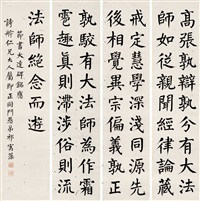 高張孰辯孰分有大法
師如從親聞經律論藏
戒定慧學深淺同源先
後相覺異宗偏義孰正
孰駁有大法師為作霜
雹趣真則滯涉俗則流
法師絕念而遊
節書大達碑銘應
詩舲仁兄大人屬即正同門愚弟祁寯藻